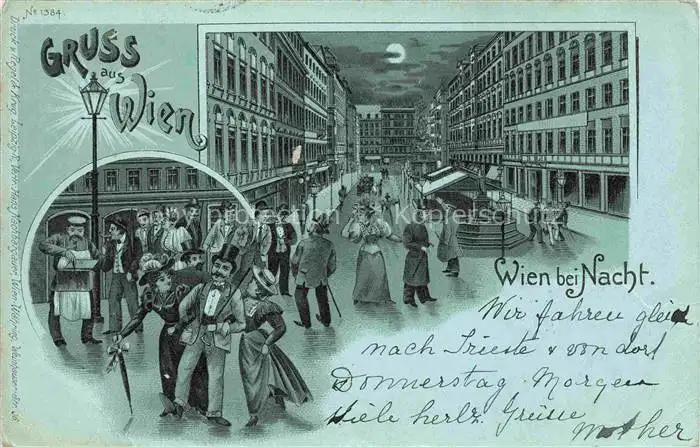 No 1384.
GRUSS
aus
Wien
Wien bei Nacht.
protection Kopierschutz
Wir fahren gleich
nach Trieste & von dort
Donnerstag Morgen
Viele herlz. Grüsse
Mother